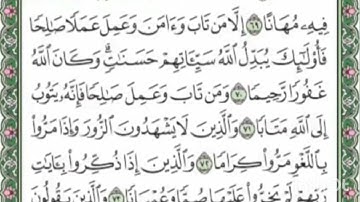 فِيهِۦ مُهَانًا ٦٩ إِلَّا مَن تَابَ وَءَامَنَ وَعَمِلَ عَمَلًا صَـٰلِحًا
فَأُو۟لَـٰٓئِكَ يُبَدِّلُ ٱللَّهُ سَيِّـَٔاتِهِمْ حَسَنَـٰتٍ ۗ وَكَانَ ٱللَّهُ
غَفُورًا رَّحِيمًا ٧٠ وَمَن تَابَ وَعَمِلَ صَـٰلِحًا فَإِنَّهُۥ يَتُوبُ
إِلَى ٱللَّهِ مَتَابًا ٧١ وَٱلَّذِينَ لَا يَشْهَدُونَ ٱلزُّورَ وَإِذَا مَرُّوا۟
بِٱللَّغْوِ مَرُّوا۟ كِرَامًا ٧٢ وَٱلَّذِينَ إِذَا ذُكِّرُوا۟ بِـَٔايَـٰتِ
رَبِّهِمْ لَمْ يَخِرُّوا۟ عَلَيْهَا صُمًّا وَعُمْيَانًا ٧٣ وَٱلَّذِينَ يَقُولُونَ